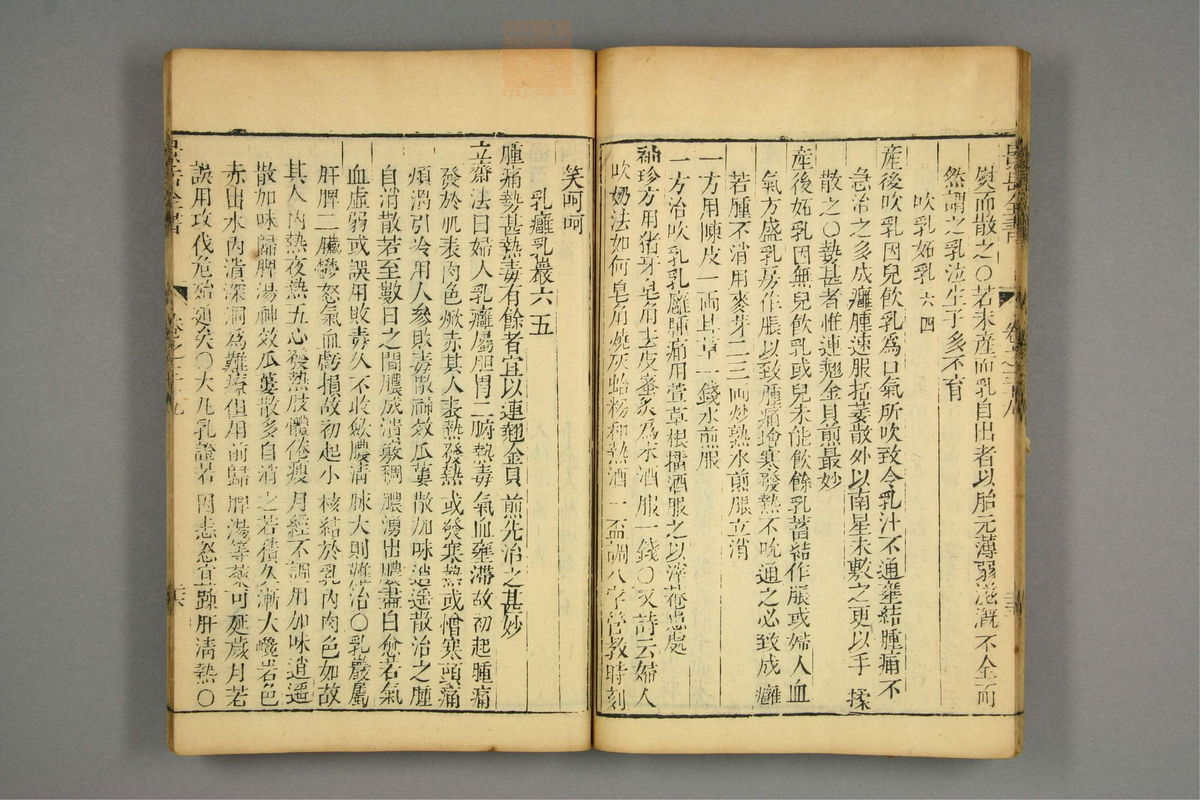 熨而散之〇若未產而乳自出者以胎元薄弱滋溉不全而
然謂之乳泣生子多不育
吹乳妬乳六四
產後吹乳因兒飲乳為口氣所吹致令乳汁不通壅結腫痛不
急治之多成癰腫速服括蔞散外以南星末敷之更以手揉
散之〇勢甚者惟連翹金貝煎最妙
產後妬乳因無兒飲乳或兒未能飲餘乳蓄結作脹或婦人血
氣方盛乳房作脹以致腫痛憎寒發熱不吮通之必致成癰
若腫不消用麥芽二三兩炒熟水煎服立消
一方用陳皮一兩甘草一錢水煎服
一方治吹乳乳癰腫痛用萱草根擂酒服之以滓菴患處
袖珍方用猪牙皂角去皮蜜炙為末酒服一錢〇又詩云婦人
吹奶法如何皂角燒灰蛤粉和熱酒一盃調八字管教時刻
笑呵呵
乳癰乳巖六五
腫痛勢甚熱毒有餘者宜以連翹金貝煎先治之甚妙
立齋法曰婦人乳癰屬胆胃二腑熱毒氣血壅滯故初起腫痛
發於肌表肉色焮赤其人表熱發熱或發寒熱或憎寒頭痛
煩渴引冷用人參敗毒散神效瓜蔞散加味逍遙散治之腫
自消散若至數日之間膿成潰竅稠膿湧出膿盡自愈若氣
血虛弱或誤用敗毒久不收斂膿清脉大則難治〇乳巖屬
肝脾二臟鬱怒氣血虧損故初起小核結於乳內肉色如故
其人內熱夜熱五心發熱肢體倦瘦月經不調用加味逍遙
散加味歸脾湯神效瓜蔞散多自消之若積久漸大巉岩色
赤出水內潰深洞為難療但用前歸脾湯等藥可延歲月若
誤用攻伐危殆迫矣〇大凡乳證若因恚怒宜疎肝清熱〇